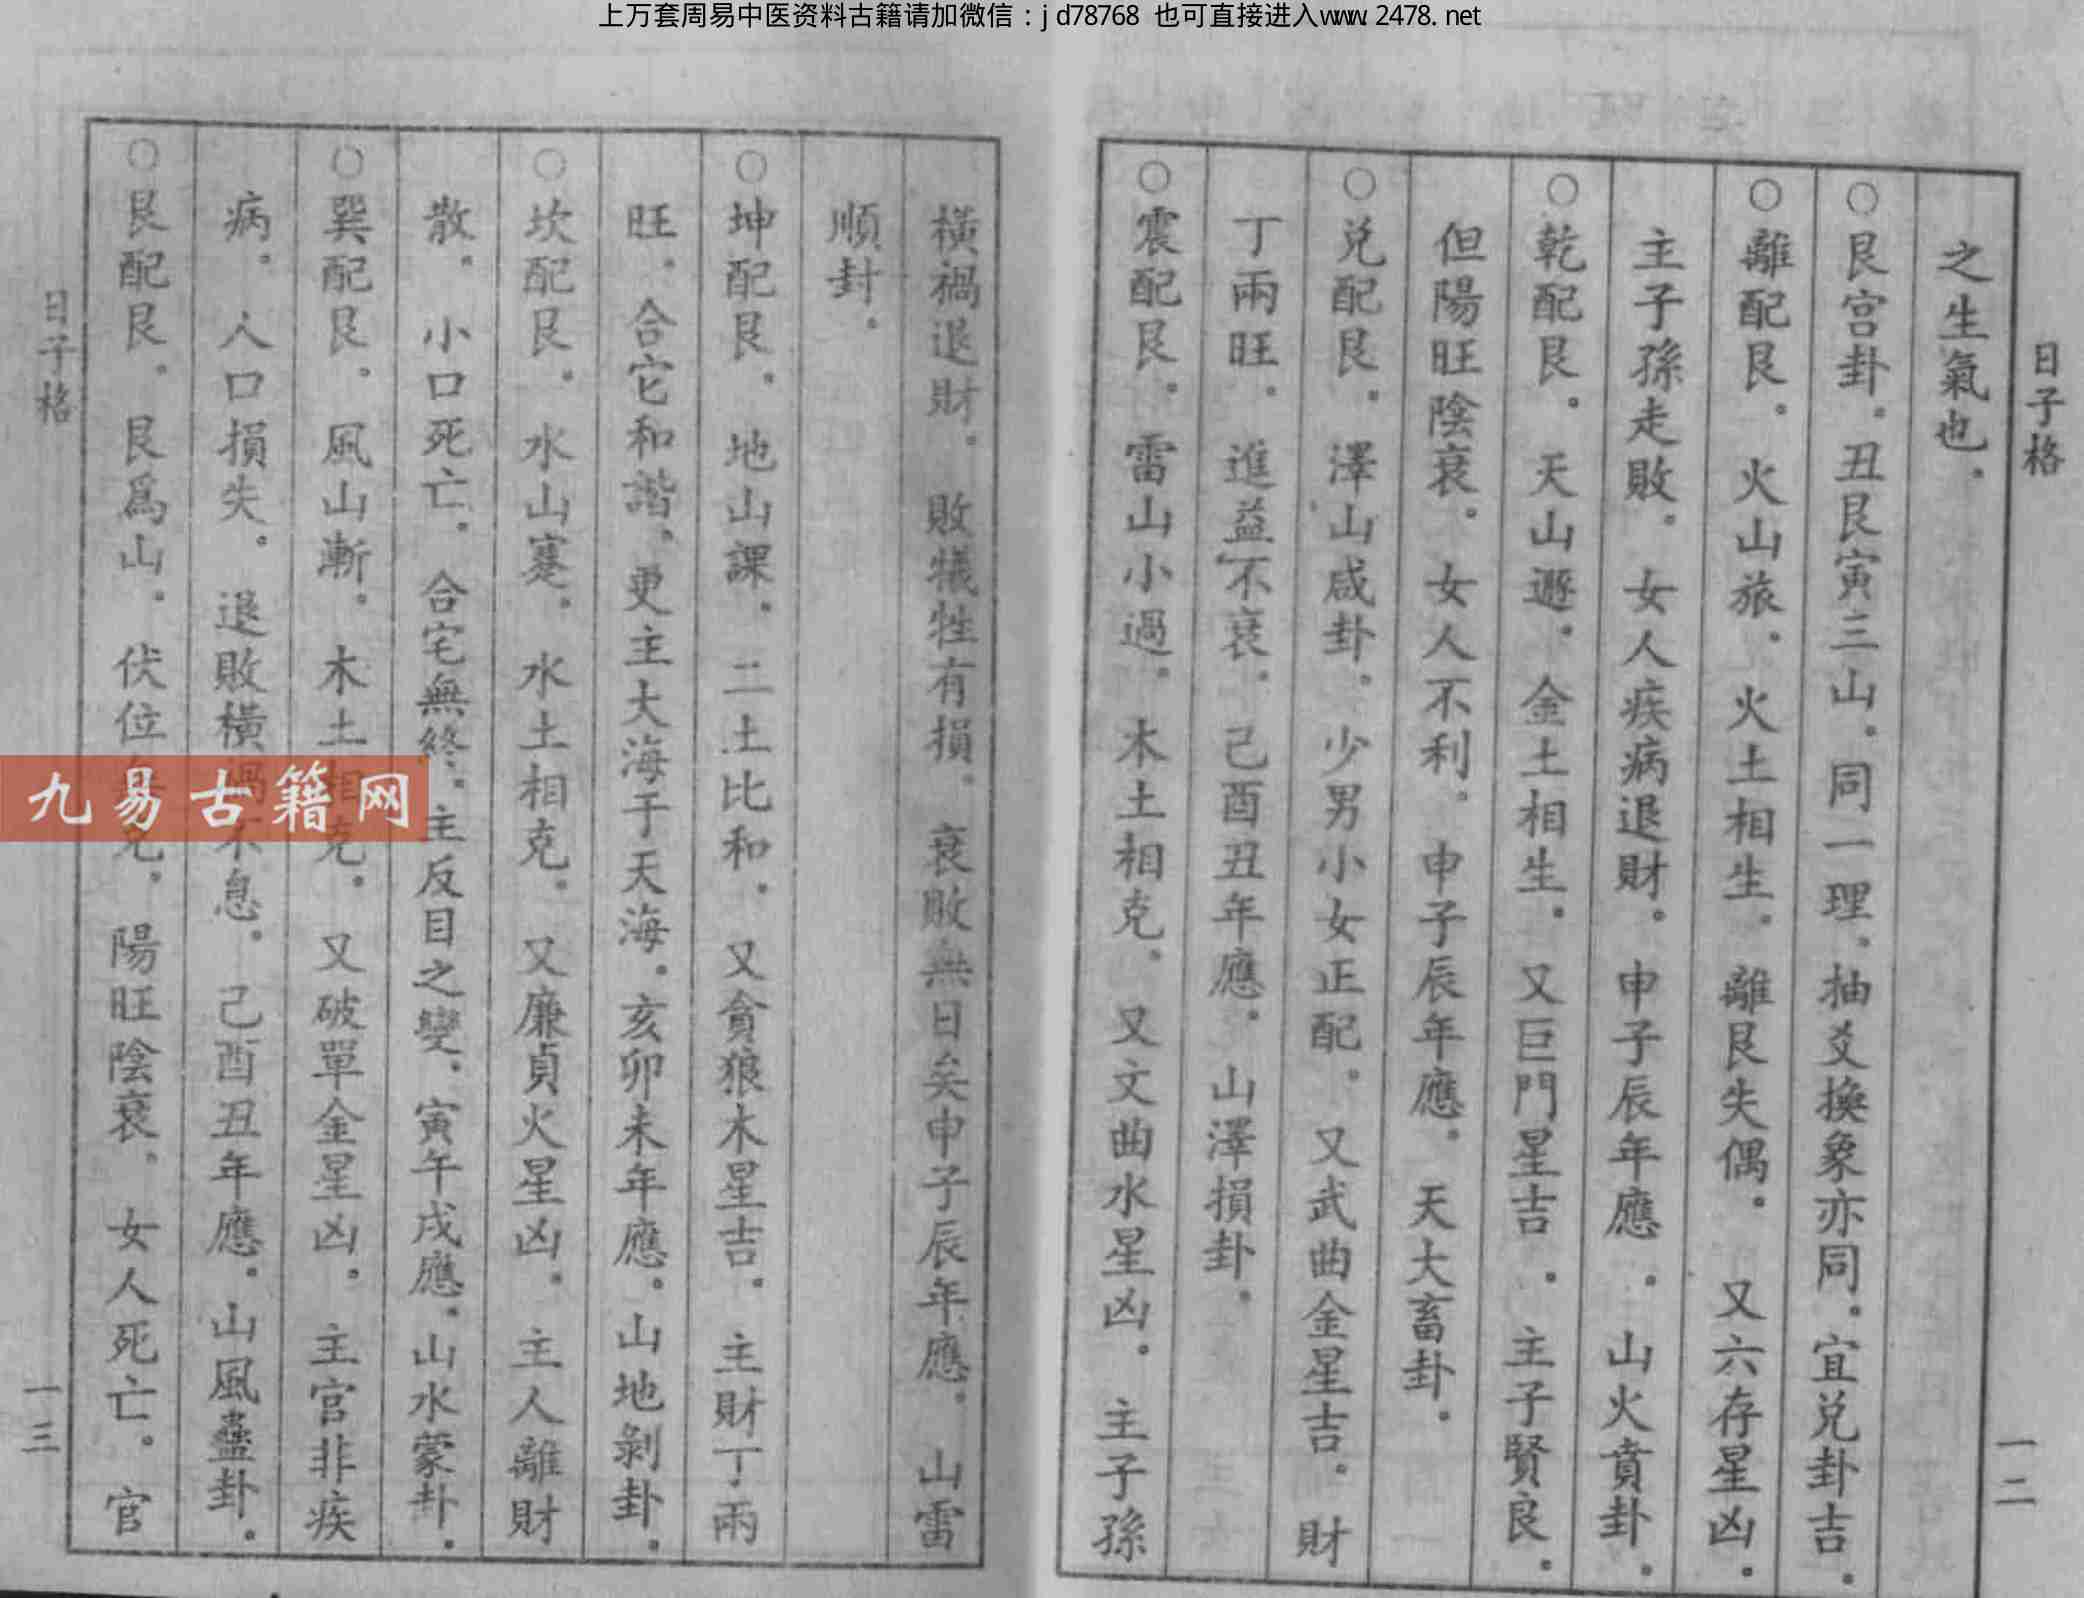 上万套周易中医资料古籍请加微信：jd78768 也可直接进入www.2478.net
日子格
一二
之生氣也。
○艮宮卦。丑艮寅三山。同一理。抽爻換象亦同。宜兌卦吉。
○離配艮。火山旅。火土相生。離艮失偶。又六存星凶。
主子孫走敗。女人疾病退財。申子辰年應。山火賁卦。
○乾配艮。天山遯。金土相生。又巨門星吉。主子賢良。
但陽旺陰衰。女人不利。申子辰年應。天大畜卦。
○兌配艮。澤山咸卦。少男小女正配。又武曲金星吉。財
丁兩旺。進益不衰。己酉丑年應。山澤損卦。
○震配艮。雷山小過。木土相克。又文曲水星凶。主子孫
橫禍退財。敗犧牲有損。衰敗無日矣申子辰年應。山雷
順封。
○坤配艮。地山課。二土比和。又貪狼木星吉。主財丁兩
旺。合它和諧。更主大海于天海。亥卯未年應。山地剝卦。
○坎配艮。水山蹇。水土相克。又廉貞火星凶。主人離財
散。小口死亡。合宅無終。主反目之變、寅午戌應。山水蒙卦。
○巽配艮。風山漸。木土相克。又破單金星凶。主官非疾
病。人口損失。退敗橫禍不息。己酉丑年應。山風蠱卦。
○艮配艮。艮爲山。伏位克。陽旺陰衰。女人死亡。官
日子格
一三
九易古籍网